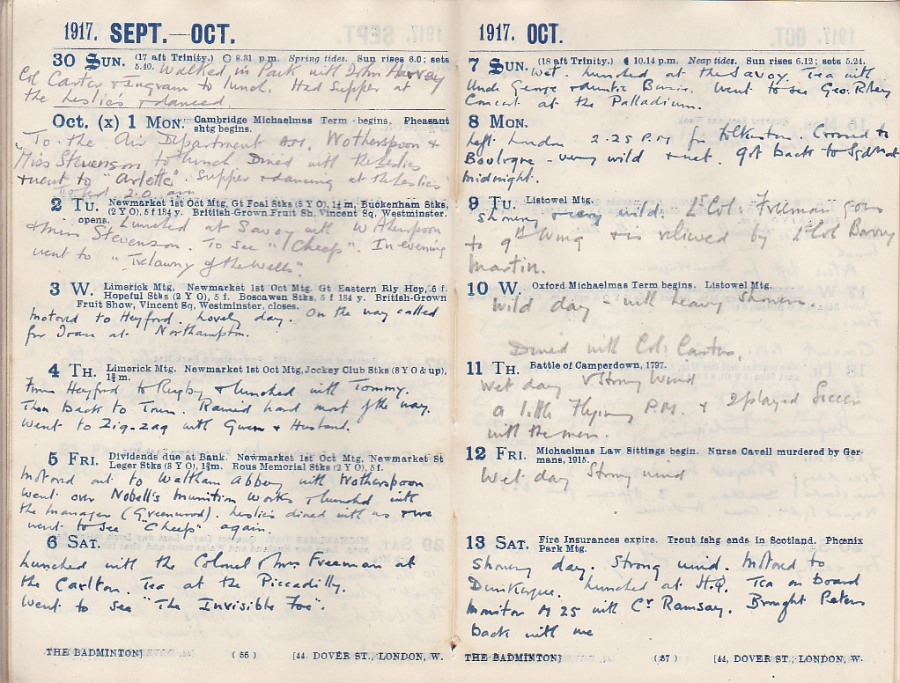 1917. SEPT.—OCT.
30 SUN. (17 aft Trinity.) ○ 8.31 p.m. Spring tides. Sun rises 6.0; sets
5.40. Walked in Park with John Harvey
Col Carter & Ingram to lunch. Had Supper at
the Leslie's & danced.
Oct. (x) 1 MON. Cambridge Michaelmas Term begins. Pheasant
shtg begins.
To the Air Department a.m. Wotherspoon &
Miss Stevenson to lunch Dined with the Leslies
& went to "Arlette". Supper & dancing at the Leslies
To bed 2.0 am
2 TU. Newmarket 1st Oct Mtg, Gt Foal Stks (3 Y O), 1¼ m, Buckenham Stks,
(2 Y O), 5 f 134 y. British-Grown Fruit Sh, Vincent Sq, Westminster,
opens. Lunched at Savoy with Wotherspoon
& Miss Stevenson. To see "Cheep". In evening
went to "Trelawny of the Wells".
3 W. Limerick Mtg. Newmarket 1st Oct Mtg, Gt Eastern Rly Hcp, 6 f.
Hopeful Stks (2 Y O), 5 f. Boscawen Stks, 5 f 134 y. British-Grown
Fruit Show, Vincent Sq, Westminster, closes.
Motored to Heyford. Lovely day. On the way called
for Joan at Northampton.
4 TH. Limerick Mtg. Newmarket 1st Oct Mtg, Jockey Club Stks (3 Y O & up),
1¾ m.
From Heyford to Rugby & lunched with Tommy.
Then back to Town. Rained hard most of the way.
Went to Zig-zag with Gwen & Husband.
5 FRI. Dividends due at Bank. Newmarket 1st Oct Mtg, Newmarket St
Leger Stks (3 Y O), 1¾m. Rous Memorial Stks (2 Y O), 5 f.
Motored out to Waltham Abbey with Wotherspoon
went over Nobell's munition works & lunched with
the manager (Greenwood). Leslies dined with us & we
went to see "Cheep" again.
6 SAT.
Lunched with the Colonel & Mrs Freeman at
the Carlton. Tea at the Piccadilly.
Went to see "The Invisible Foe".
THE BADMINTON] (56) [44, DOVER ST., LONDON, W.
1917. OCT.
7 SUN. (18 aft Trinity.) ☾ 10.14 p.m. Neap tides. Sun rises 6.12; sets 5.24.
Wet. Lunched at the Savoy. Tea with
Uncle George & Auntie. Went to see Geo. Robey
Concert at the Palladium.
8 MON.
Left London 2-25 P.M for Folkestone. Crossed to
Boologne - very wild & wet. Got back to Sqdn at
Midnight.
9 TU. Listowel Mtg.
Showery & very wild. Lt Col: Freeman goes
to 9th Wing & is relieved by Lt Col Barry
Martin.
10 W. Oxford Michaelmas Term begins. Listowel Mtg.
Wild day - with heavy showers.
Dined with Col: Carter.
11 TH. Battle of Camperdown, 1797.
Wet day & Strong Wind
a little Flying P.M. & I played Soccer
with the men.
12 FRI. Michaelmas Law Sittings begin. Nurse Cavell murdered by Ger-
mans, 1915.
Wet day Strong wind
13 SAT. Fire Insurances expire. Trout fshg ends in Scotland. Phœnix
Park Mtg.
Showery day. Strong wind. Motored to
Dunkerque. Lunched at H.Q. Tea on board
Monitor M 25 with Cr Ramsay. Brought Peters
back with me
THE BADMINTON] (57) [44, DOVER ST., LONDON, W.